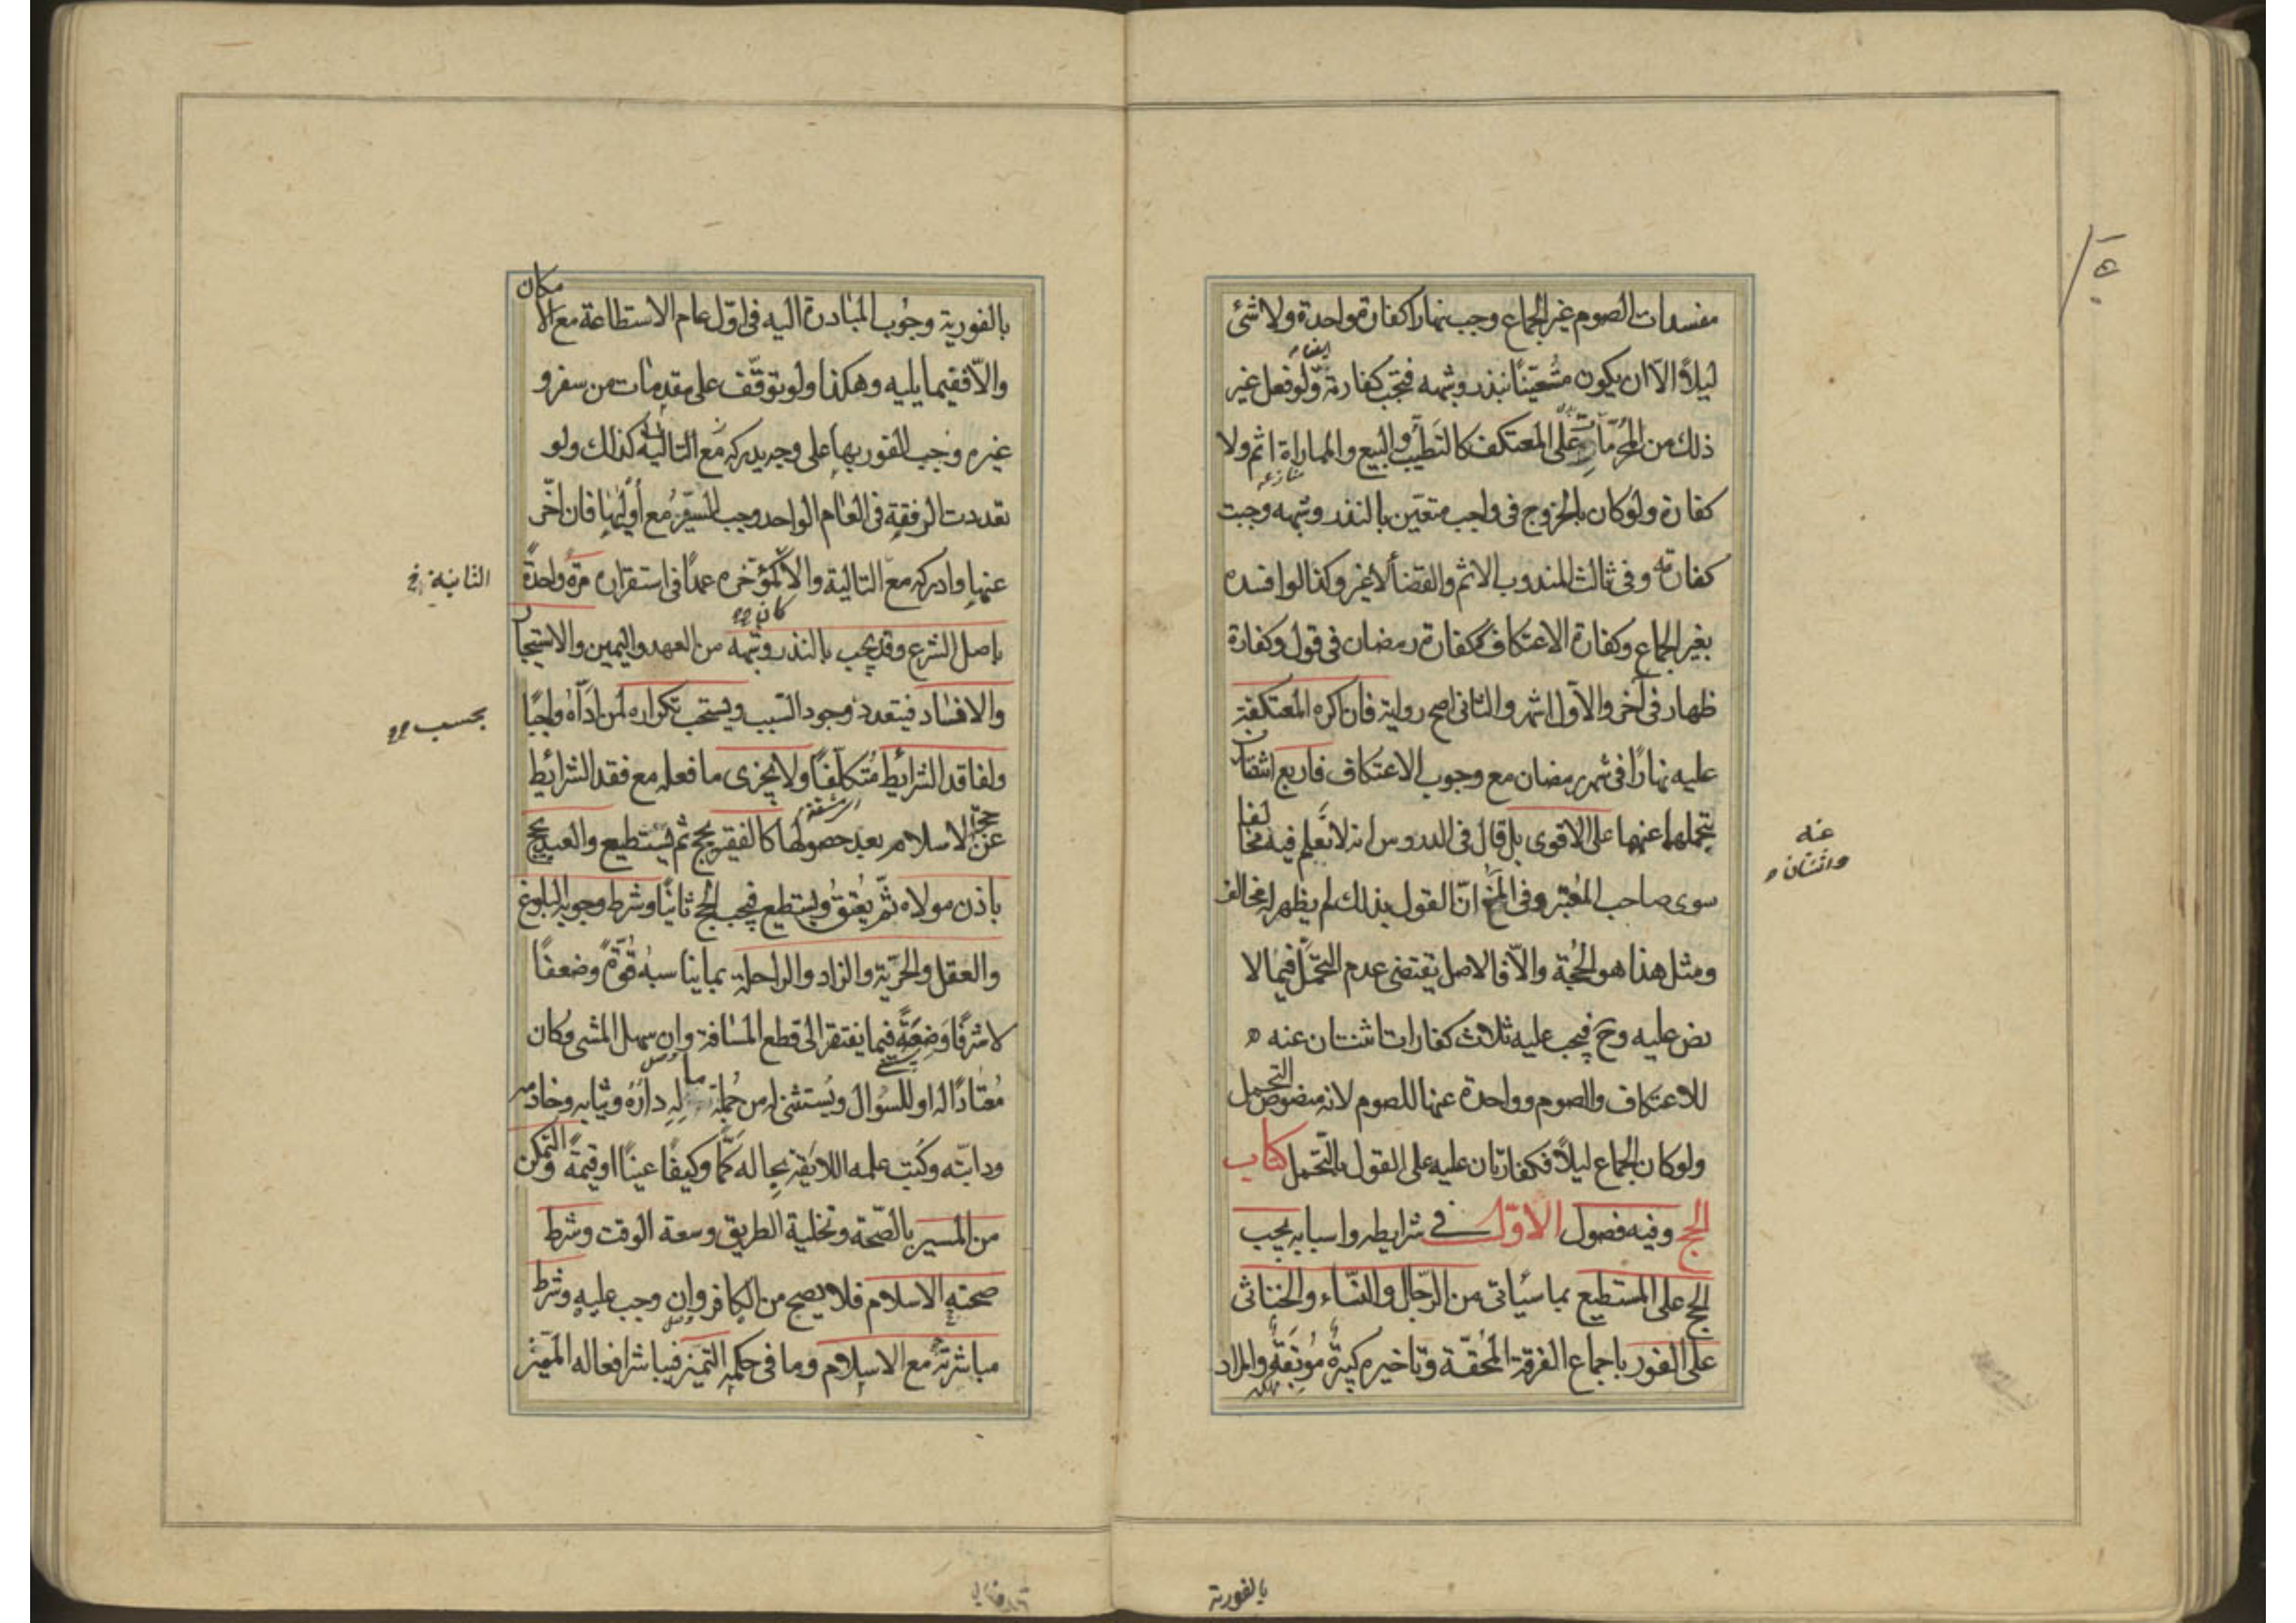 مفسدات الصوم غير الجماع وجب نهارا كفارة واحدة ولا شئ
ليلاً الّا ان يكون متعيّناً بنذر وشبهه فتجب كفارته ولو فعل غير
ايضا
ذلك من المحرّمات على المعتكف كالتطيّب والبيع والمماراة اثم ولا
كفارة ولو كان بالخروج فى واجب متعيّن بالنذر وشبهه وجبت
كفارته وفى ثالث المندوب الاثم والقضأ لا غير وكذا لو افسده
بغير الجماع وكفارة الاعتكاف ككفارة رمضان فى قول وكفارة
ظهار فى آخر والاوّل اشهر والثانى اصح رواية فان اكره المعتكفة
عليه نهارًا فى شهر رمضان مع وجوب الاعتكاف فاربع اثنتان
عنه
واثنتان
يتحملها عنها على الاقوى بل قال فى الدروس انه لا نعلم فيه مخالفا
سوى صاحب المعتبر وفى المخ انّ القول بذلك لم يظهر له مخالف
ومثل هذا هو الحجة والّا فالاصل يقتضى عدم التحمّل فيما لا
نص عليه وح فيجب عليه ثلاث كفارات اثنتان عنه
للاعتكاف والصوم وواحدة عنها للصوم لانه منصوص التحمل
ولو كان الجماع ليلاً فكفارتان عليه على القول بالتحمل كتاب
الحج وفيه فصول الاوّل فى شرايطه واسبابه يجب
الحج على المستطيع بما سيأتى من الرّجال والنّساء والخناثى
على الفور باجماع الفرقة المحقّة وتاخيره كبيرة مُوبِقَةٌ والمراد
بالفورية
بالفورية وجوب المبادرة اليه فى اوّل عام الاستطاعة مع الامكان
والّا ففيما يليه وهكذا ولو توقّف على مقدمات من سفر و
غيره وجب الفور بها على وجه يدركه كذلك ولو
تعددت الرفقة فى العام الواحد وجب السّير مع أُولٰيها فان اخّر
عنها وادركه مع التالية والّا كمؤخّره عمدًا فى استقراره مرّةً واحدةً
الثانية خ
باصل الشرع وقد يجب بالنذر وشبهه من العهد واليمين والاستيجار
والافساد فيتعدد وجود السّبب ويستحب تكراره لمن ادّاه واجبًا
بحسب
ولفاقد الشرائط متكلّفًا ولا يجزى ما فعله مع فقد الشرائط
عن حجة الاسلام بعد حصولها كالفقير يحج ثم يستطيع والعبد يحج
باذن مولاه ثمّ يُعتق ويستطيع فيجب الحج ثانيًا وشرط وجوبه البلوغ
والعقل والحرّية والزاد والراحلة بما يناسبه قوّةً وضعفًا
لا شرفًا وضِعَةً فيما يفتقر الى قطع المسافة وان سهل المشى وكان
مُعتادًا له او للسؤال ويُستثنى له من جُملة ماله دارُه وثيابه وخادمه
ودابّته وكُتب علمه اللايقة بحاله كمًّا وكيفًا عينًا او قيمةً والتمكن
من المسير بالصّحة وتخلية الطريق وسعة الوقت وشرط
صحته الاسلام فلا يصح من الكافر وان وجب عليه وشرط
مباشرته مع الاسلام وما فى حكمه التميز فيباشر افعاله المميّز